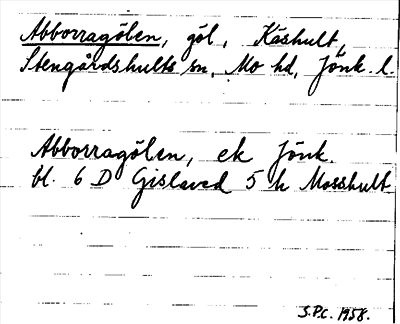 Abborragölen, göl, Kåshult,
Stengårdshults sn, Mo hd, Jönk. l.
Abborragölen, ek Jönk.
bl. 6 D Gislaved 5 h Mosshult
S.P.C. 1958.